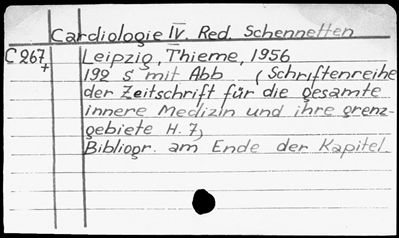 Cardiologie IV. Red. Schennetten
C 267
+
Leipzig, Thieme, 1956
192 S mit Abb (Schriftenreihe
der Zeitschrift für die gesamte
innere Medizin und ihre grenz-
gebiete H. 7)
Bibliogr. am Ende der Kapitel